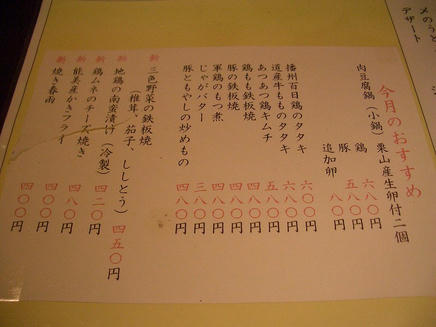 メのうど
デザート
今月のおすすめ
肉豆腐鍋（小鍋）栗山産生卵付二個
鶏 六八〇円
豚 五八〇円
追加卵
播州百日鶏のタタキ 六〇〇円
道産牛もものタタキ 六八〇円
あつあつ鶏キムチ 五八〇円
鶏もも鉄板焼 四八〇円
豚の鉄板焼 四八〇円
軍鶏のもつ煮 四八〇円
じゃがバター 三八〇円
豚ともやしの炒めもの 四八〇円
新 三色野菜の鉄板焼
（椎茸、茄子、ししとう） 四五〇円
新 地鶏の南蛮漬け（冷製） 四二〇円
新 鶏ムネのチーズ焼き 四八〇円
新 能美産かきフライ 四〇〇円
新 焼き春雨 四〇〇円